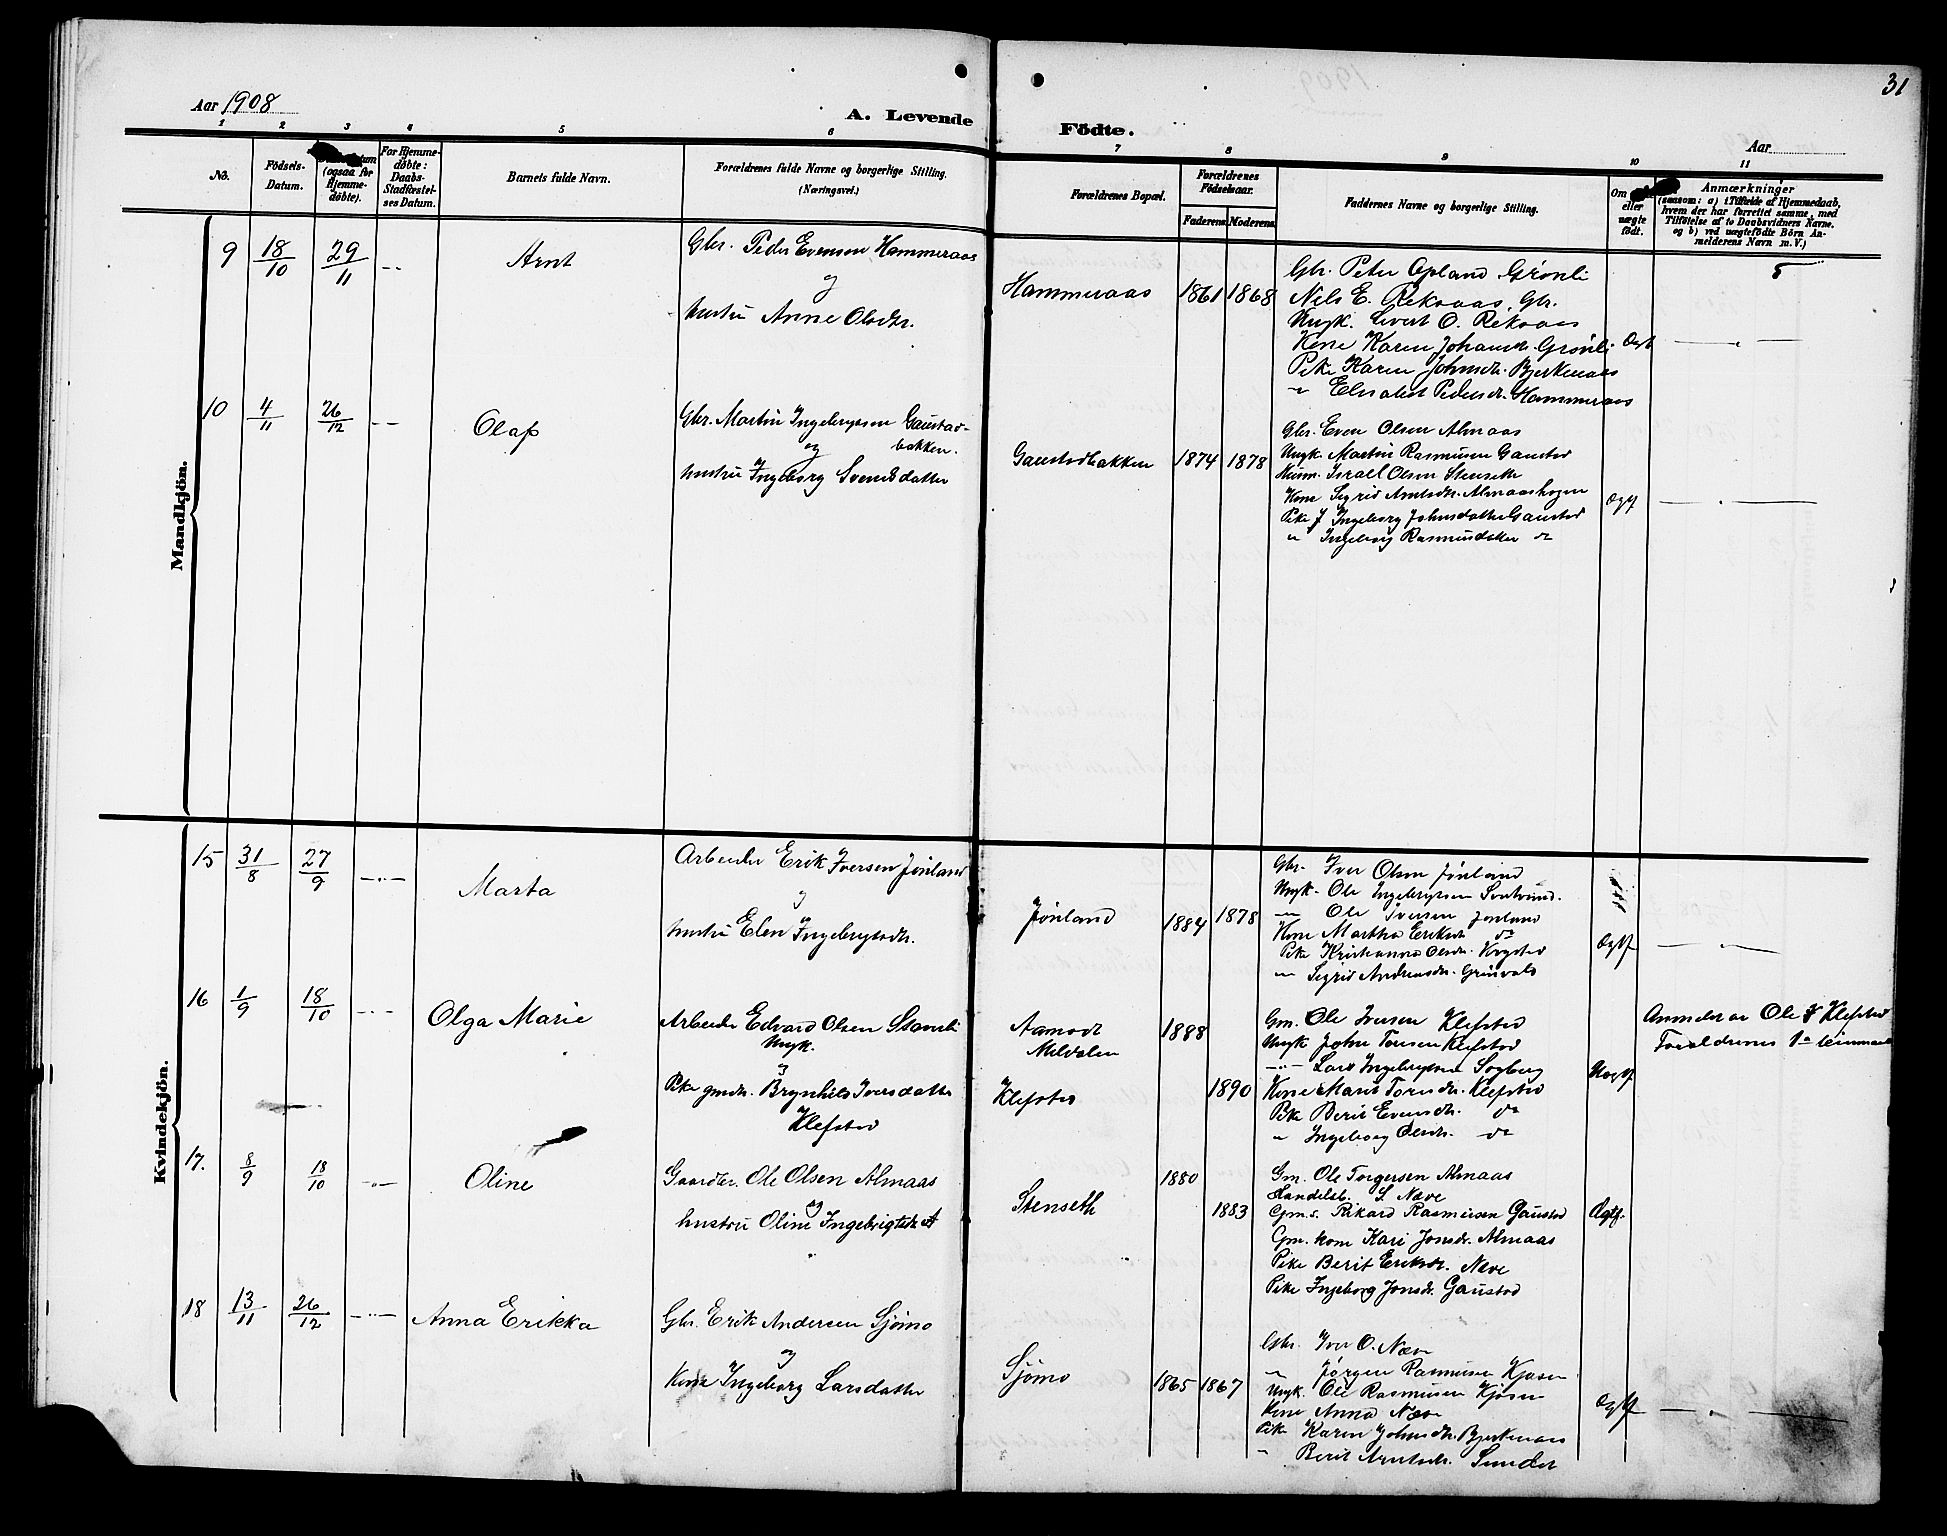 31
Aar 1908
A. Levende Födte.
Aar
1 2 3 4 5 6 7 8 9 10 11
No.
Födsels-Datum.
(ogsaa for Hjemme-döbte).
For Hjemme-döbte: Daabs-Stadfæstel-ses Datum.
Barnets fulde Navn.
Forældrenes fulde Navne og borgerlige Stilling. (Næringsvei.)
Forældrenes Bopæl.
Forældrenes Födselsaar.
Faderens Moderens
Faddernes Navne og borgerlige Stilling.
Om eller uægte födt.
Anmærkninger
(saasom: a) i Tilfælde af Hjemmedaab,
hvem der har forrettet samme, med
Tilföielse af to Daabsvidners Navne.
og b) ved uægtefödte Börn An-
melderens Navn m. V.)
Mandkjön.
9 18/10 29/11 Arnt
Gbr. Peder Evensen Hammeraas
og
hustru Anne Olsdtr.
Hammeraas 1861 1868
Gbr. Peter Opland Grønli
Nils E. Rekaas Gbr.
Ungk. Sivert O. Rekaas
Kone Karen Johansdr. Grønli
Pike Karen Johnsdr. Bjerkenaas
" Elisabet Pedersdr. Hammeraas
Ægt
5
10 4/11 26/12 Olaf
Gbr. Martin Ingebrigtsen Gaustad-
bakken.
og
hustru Ingeborg Svendsdatter
Gaustadbakken 1874 1878
Gbr. Even Olsen Almaas
Ungk. Martin Rasmusen Gaustad
Israel Olsen Stenseth
Kone Sigrid Arntsdr. Almaashagen
Pike Ingeborg Johnsdatter Gaustad
" Ingeborg Rasmusdatter do
Ægtf
Kvindekjön.
15 31/8 27/9 Marta
Arbeider Erik Iversen Jönland
og
hustru Elen Ingebrigtsdr.
Jönland 1884 1878
Gbr. Iver Olsen Jönland
Ungk. Ole Ingebrigtsen
" Ole Iversen Jönland
Kone Martha Eriksdr do
Pike Kristianna Olsdr.
" Sigrid Andreasdr. Grinvold
Ægtf
16 1/9 18/10 Olga Marie
Arbeider Edvard Olsen
Ungk.
og
Pike gmdr. Brynhild Iversdatter
Klefstad
Aamodt
Meldalen
Klefstad
1888
1890
Gm. Ole Iversen Klefstad
Ungk John Toresen Klefstad
" Lars Ingebrigtsen
Kone Marit Toresdr. Klefstad
Pike Berit Evensdr. do
" Ingeborg Olsdr. do
Uægtf
Anmelder Ole Klefstad
Forældrenes 1ste
17. 8/9 18/10 Oline
Gaardbr. Ole Olsen Almaas
og
hustru Oline Ingebrigtsdr
Stenseth
1880
1883
Gm. Ole Torgersen Almaas
Handelsb. S. Næve
Gm. s. Rikard Rasmusen Gaustad
Gm. kone Kari Jonsdr. Almaas
Pike Berit Eriksdr. Næve
Pike Ingeborg Jonsdr. Gaustad
Ægtf.
18 13/11 26/12 Anna Erikka
Gbr. Erik Andersen Sjömo
og
Kone Ingeborg Larsdatter
Sjömo 1865 1867
Gbr. Iver O. Næve
" Jörgen Rasmusen Kjösen
Ungk. Ole Rasmusen Kjösen
Kone Anna Næve
Pike Karen Johnsdr. Bjerkenaas
" Berit Arntsdr. Sundet
Ægtf